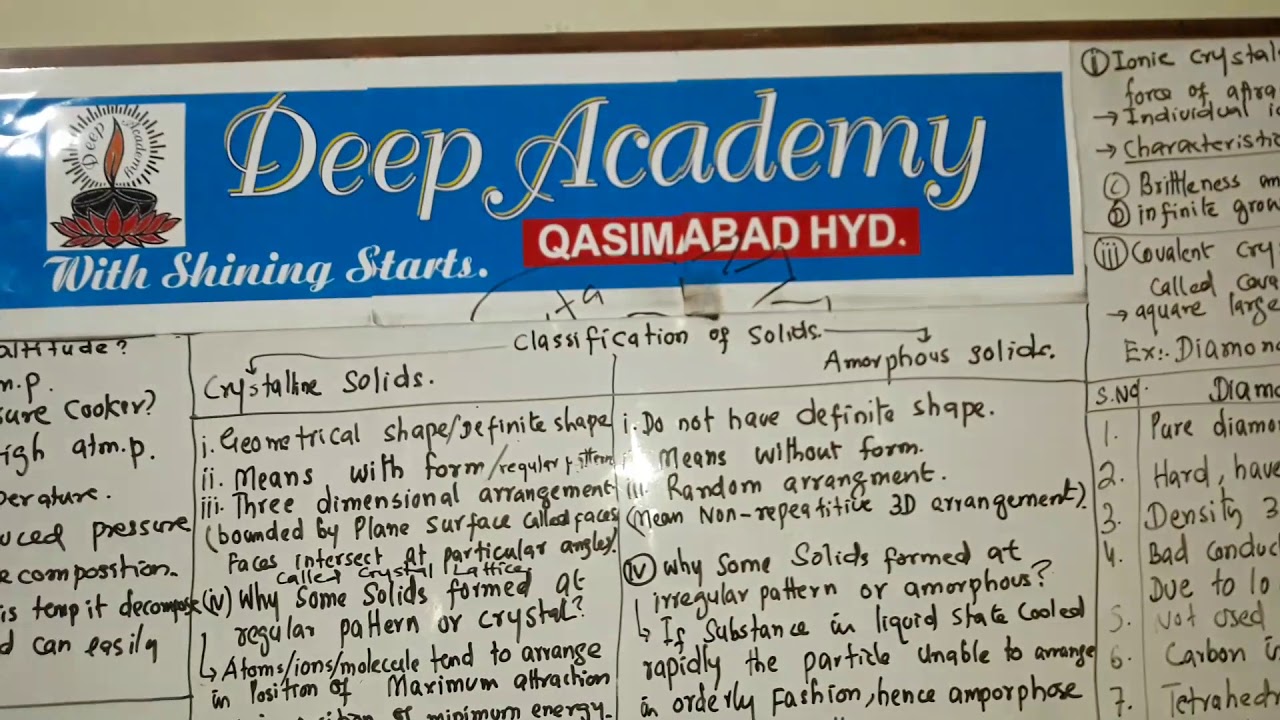 Deep Academy
Deep Academy
QASIMABAD HYD.
With Shining Starts.
altitude?
m.p.
sure cooker?
igh atm.p.
perature.
uced pressure
ecomposstion.
is temp it decompose
d can easily
Classification of Solids.
Crystalline Solids.
i. Geometrical shape/Definite shape
ii. Means with form/regular pattern
iii. Three dimensional arrangement
(bounded by Plane Surface Called faces
Faces intersect at particular angles).
Called Crystal Lattice
(iv) Why Some Solids formed at
regular pattern or crystal?
↳ Atoms/ions/molecule tend to arrange
in Position of Maximum attraction
of minimum energy.
Amorphous solids.
i. Do not have definite shape.
Means without form.
iii. Random arrangment.
(Mean Non-repeatitive 3D arrangement).
(iv) Why Some Solids formed at
irregular pattern or amorphous?
↳ If Substance in liquid state Cooled
rapidly the particle unable to arrange
in orderly Fashion, hence amporphose
(i) Ionic Crystal
force of
→ Individual i
→ Characteristic
(C) Brittleness an
(D) infinite grow
(iii) Covalent Cry
Called Cova
→ aquare large
Ex:- Diamon
S.No. Diamo
1. Pure diamo
2. Hard, have
3. Density 3
4. Bad Conduc
Due to lo
5. Not used
6. Carbon i
7. Tetrahed